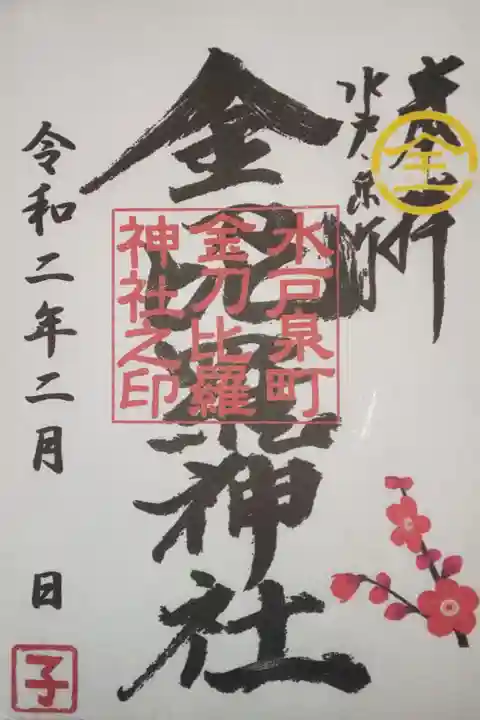 奉拝
水戸泉町
金刀比羅神社
水戸泉町
金刀比羅
神社之印
令和二年二月　日
子